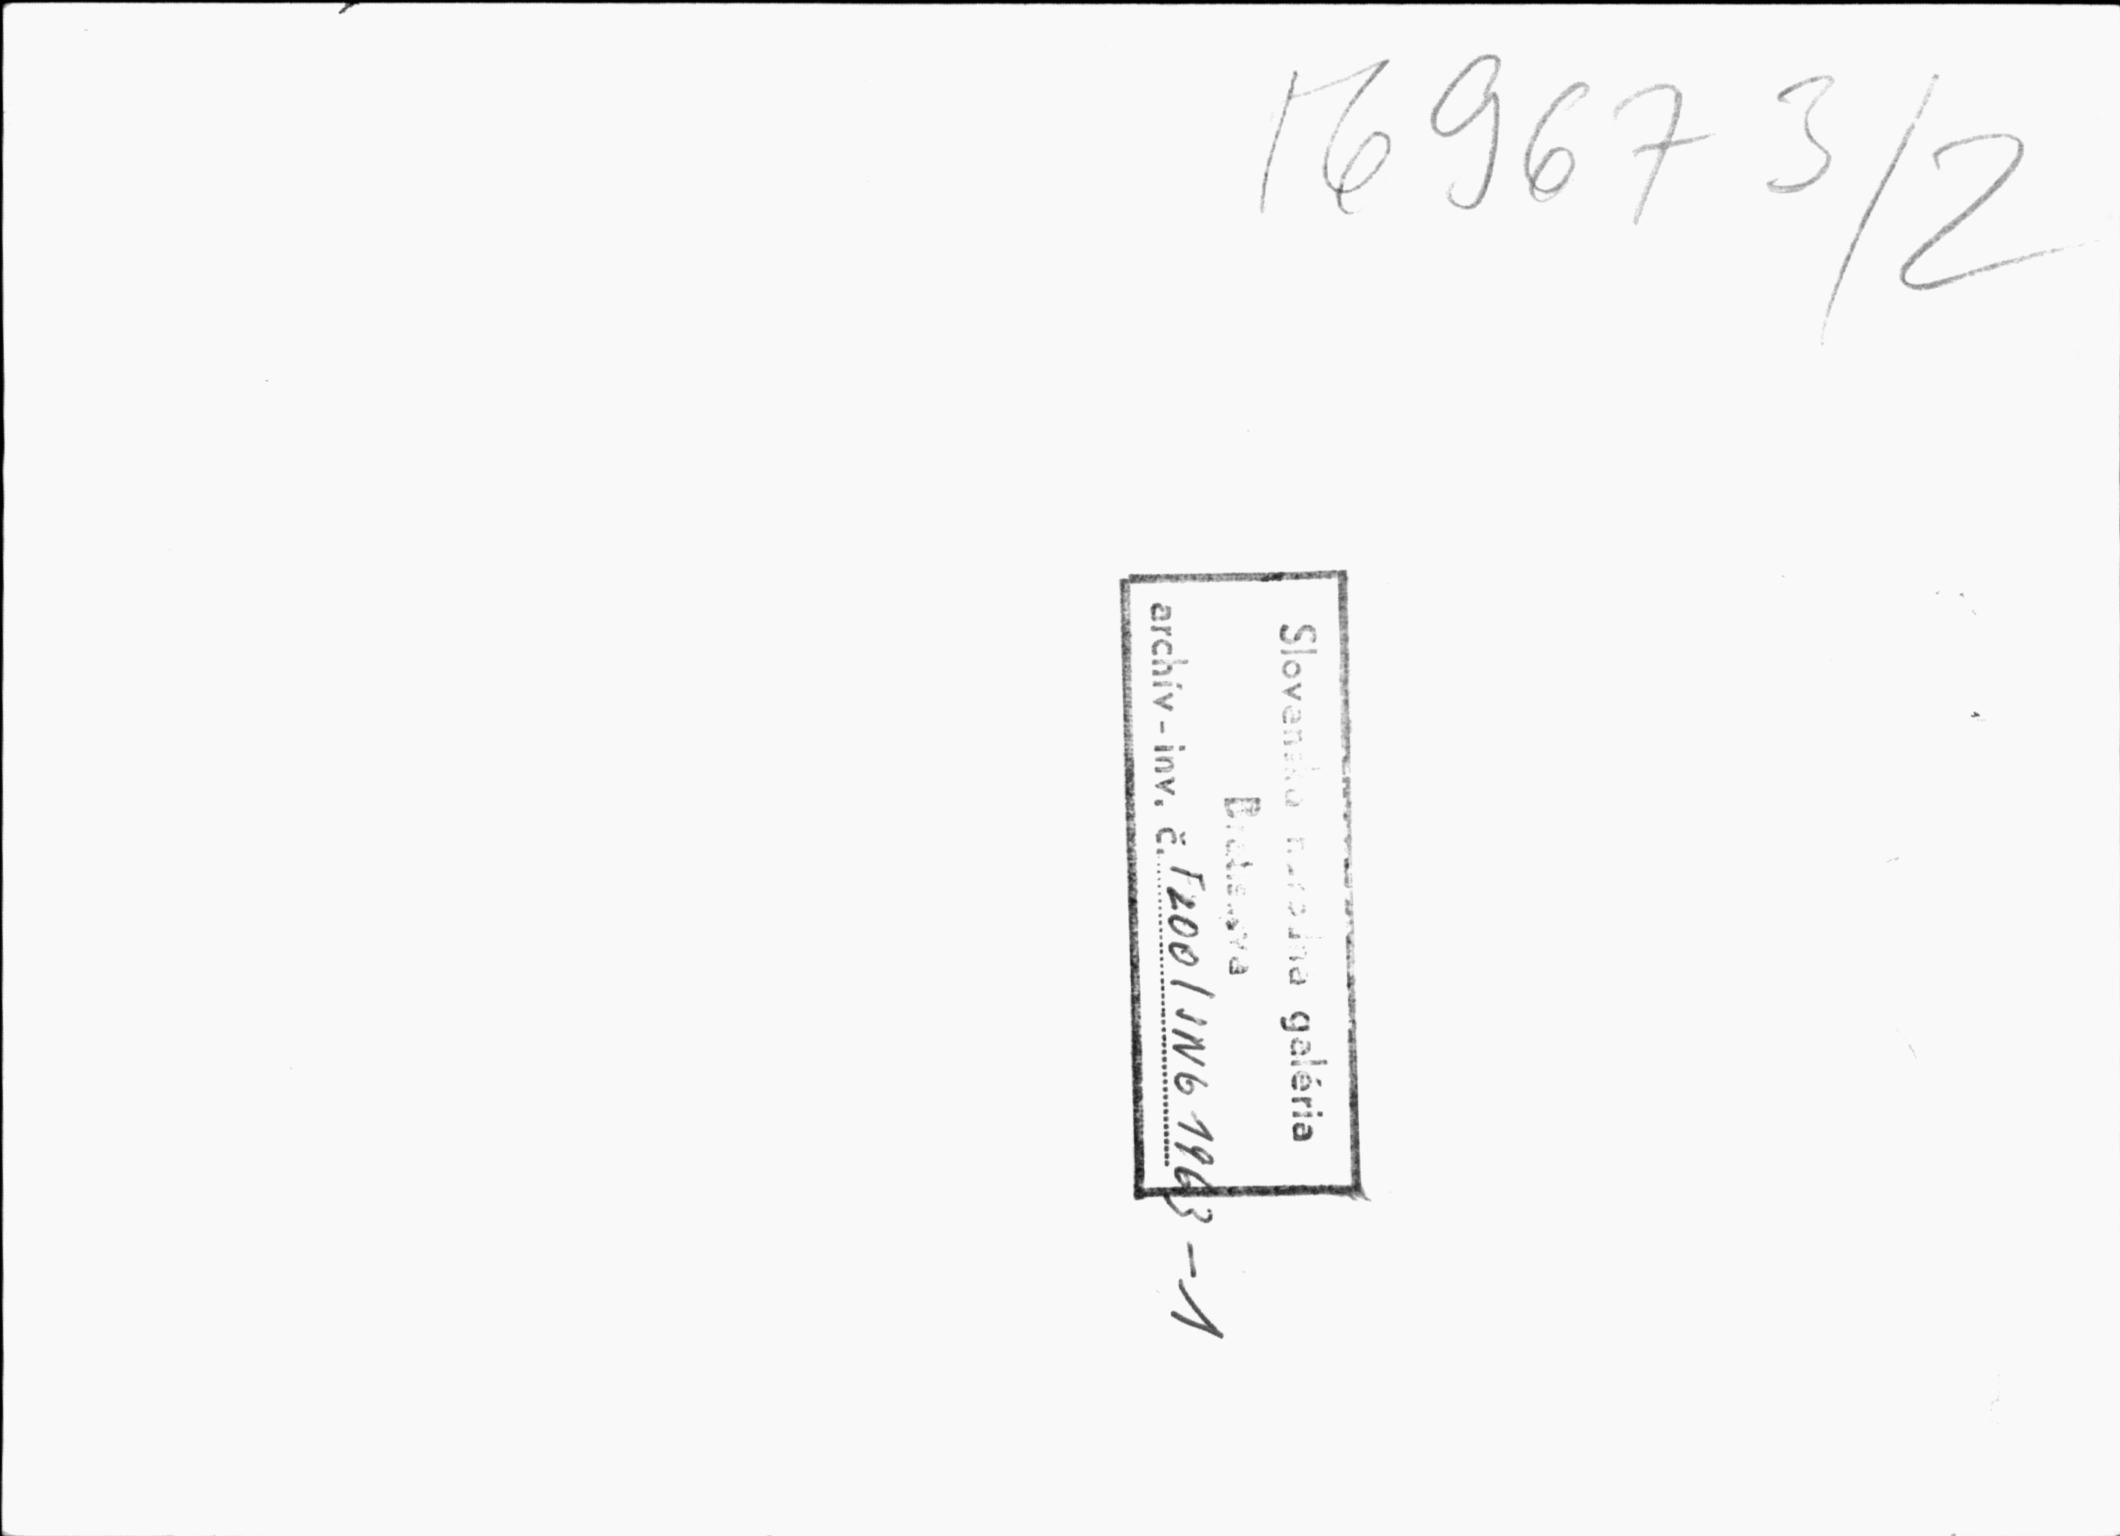 16967 3/2
Slovenská národná galéria
Bratislava
archív-inv. č. F200/SNG 1963-1